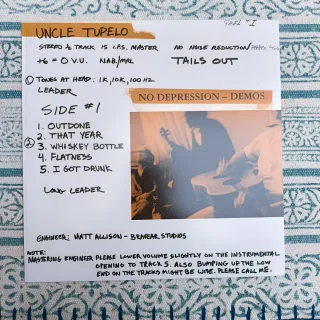 UNCLE TUPELO
STEREO 1/2 TRACK 15 I.P.S. MASTER
NO NOISE REDUCTION/
+6 = 0 V.U. NAB/
TAILS OUT
TONES AT HEAD: 1K, 10K, 100 HZ
LEADER
NO DEPRESSION – DEMOS
SIDE #1
1. OUTDONE
2. THAT YEAR
3. WHISKEY BOTTLE
4. FLATNESS
5. I GOT DRUNK
LONG LEADER
ENGINEER: MATT ALLISON - BEDBEAR STUDIOS
NOTE:
MASTERING ENGINEER, PLEASE LOWER VOLUME SLIGHTLY ON THE INSTRUMENTAL
OPENING TO TRACK 5. ALSO BUMPING UP THE LOW
END ON THE TRACKS MIGHT BE WISE. PLEASE CALL ME.